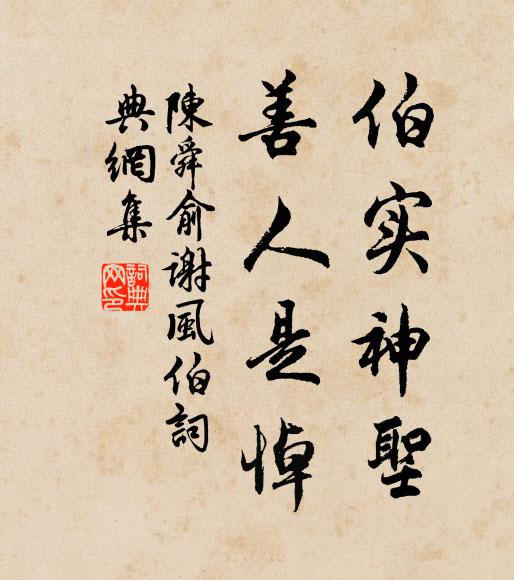 伯实神聖
善人是悼
陳舜俞謝風伯詞
典網集
詞典
网印